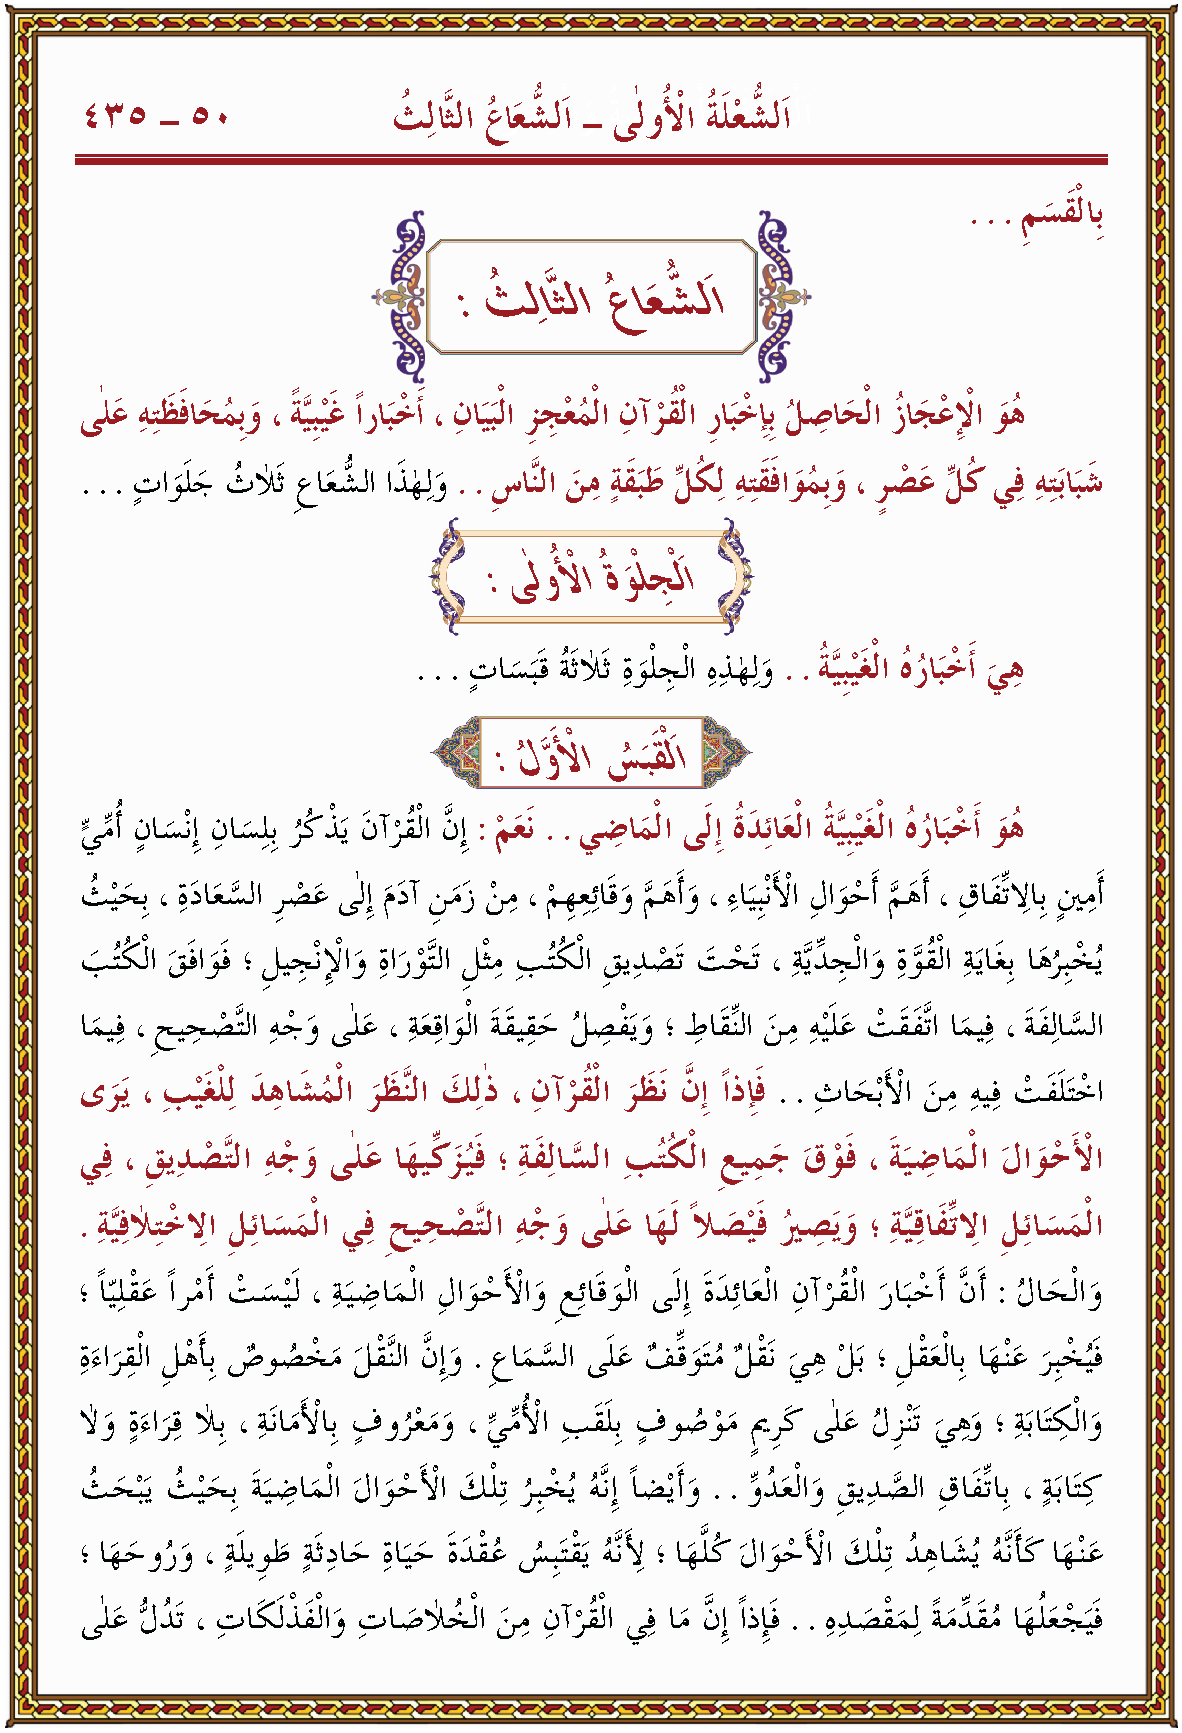 اَلشُّعْلَةُ الْأُولٰى ــ اَلشُّعَاعُ الثَّالِثُ ٥٠ ــ ٤٣٥
بِالْقَسَمِ . . .
اَلشُّعَاعُ الثَّالِثُ :
هُوَ الْإِعْجَازُ الْحَاصِلُ بِإِخْبَارِ الْقُرْآنِ الْمُعْجِزِ الْبَيَانِ ، أَخْبَاراً غَيْبِيَّةً ، وَبِمُحَافَظَتِهِ عَلٰى
شَبَابَتِهِ فِي كُلِّ عَصْرٍ ، وَبِمُوَافَقَتِهِ لِكُلِّ طَبَقَةٍ مِنَ النَّاسِ . . وَلِهٰذَا الشُّعَاعِ ثَلَاثُ جَلَوَاتٍ . . .
اَلْجِلْوَةُ الْأُولٰى :
هِيَ أَخْبَارُهُ الْغَيْبِيَّةُ . . وَلِهٰذِهِ الْجِلْوَةِ ثَلَاثَةُ قَبَسَاتٍ . . .
اَلْقَبَسُ الْأَوَّلُ :
هُوَ أَخْبَارُهُ الْغَيْبِيَّةُ الْعَائِدَةُ إِلَى الْمَاضِي . . نَعَمْ : إِنَّ الْقُرْآنَ يَذْكُرُ بِلِسَانِ إِنْسَانٍ أُمِّيٍّ
أَمِينٍ بِالِاتِّفَاقِ ، أَهَمَّ أَحْوَالِ الْأَنْبِيَاءِ ، وَأَهَمَّ وَقَائِعِهِمْ ، مِنْ زَمَنِ آدَمَ إِلٰى عَصْرِ السَّعَادَةِ ، بِحَيْثُ
يُخْبِرُهَا بِغَايَةِ الْقُوَّةِ وَالْجِدِّيَّةِ ، تَحْتَ تَصْدِيقِ الْكُتُبِ مِثْلِ التَّوْرَاةِ وَالْإِنْجِيلِ ؛ فَوَافَقَ الْكُتُبَ
السَّالِفَةَ ، فِيمَا اتَّفَقَتْ عَلَيْهِ مِنَ النِّقَاطِ ؛ وَيَفْصِلُ حَقِيقَةَ الْوَاقِعَةِ ، عَلٰى وَجْهِ التَّصْحِيحِ ، فِيمَا
اخْتَلَفَتْ فِيهِ مِنَ الْأَبْحَاثِ . . فَإِذاً إِنَّ نَظَرَ الْقُرْآنِ ، ذٰلِكَ النَّظَرَ الْمُشَاهِدَ لِلْغَيْبِ ، يَرَى
الْأَحْوَالَ الْمَاضِيَةَ ، فَوْقَ جَمِيعِ الْكُتُبِ السَّالِفَةِ ؛ فَيُزَكِّيهَا عَلٰى وَجْهِ التَّصْدِيقِ ، فِي
الْمَسَائِلِ الِاتِّفَاقِيَّةِ ؛ وَيَصِيرُ فَيْصَلاً لَهَا عَلٰى وَجْهِ التَّصْحِيحِ فِي الْمَسَائِلِ الِاخْتِلَافِيَّةِ .
وَالْحَالُ : أَنَّ أَخْبَارَ الْقُرْآنِ الْعَائِدَةَ إِلَى الْوَقَائِعِ وَالْأَحْوَالِ الْمَاضِيَةِ ، لَيْسَتْ أَمْراً عَقْلِيّاً ؛
فَيُخْبِرَ عَنْهَا بِالْعَقْلِ ؛ بَلْ هِيَ نَقْلٌ مُتَوَقِّفٌ عَلَى السَّمَاعِ . وَإِنَّ النَّقْلَ مَخْصُوصٌ بِأَهْلِ الْقِرَاءَةِ
وَالْكِتَابَةِ ؛ وَهِيَ تَنْزِلُ عَلٰى كَرِيمٍ مَوْصُوفٍ بِلَقَبِ الْأُمِّيِّ ، وَمَعْرُوفٍ بِالْأَمَانَةِ ، بِلَا قِرَاءَةٍ وَلَا
كِتَابَةٍ ، بِاتِّفَاقِ الصَّدِيقِ وَالْعَدُوِّ . . وَأَيْضاً إِنَّهُ يُخْبِرُ تِلْكَ الْأَحْوَالَ الْمَاضِيَةَ بِحَيْثُ يَبْحَثُ
عَنْهَا كَأَنَّهُ يُشَاهِدُ تِلْكَ الْأَحْوَالَ كُلَّهَا ؛ لِأَنَّهُ يَقْتَبِسُ عُقْدَةَ حَيَاةِ حَادِثَةٍ طَوِيلَةٍ ، وَرُوحَهَا ؛
فَيَجْعَلُهَا مُقَدِّمَةً لِمَقْصَدِهِ . . فَإِذاً إِنَّ مَا فِي الْقُرْآنِ مِنَ الْخُلَاصَاتِ وَالْفَذْلَكَاتِ ، تَدُلُّ عَلٰى